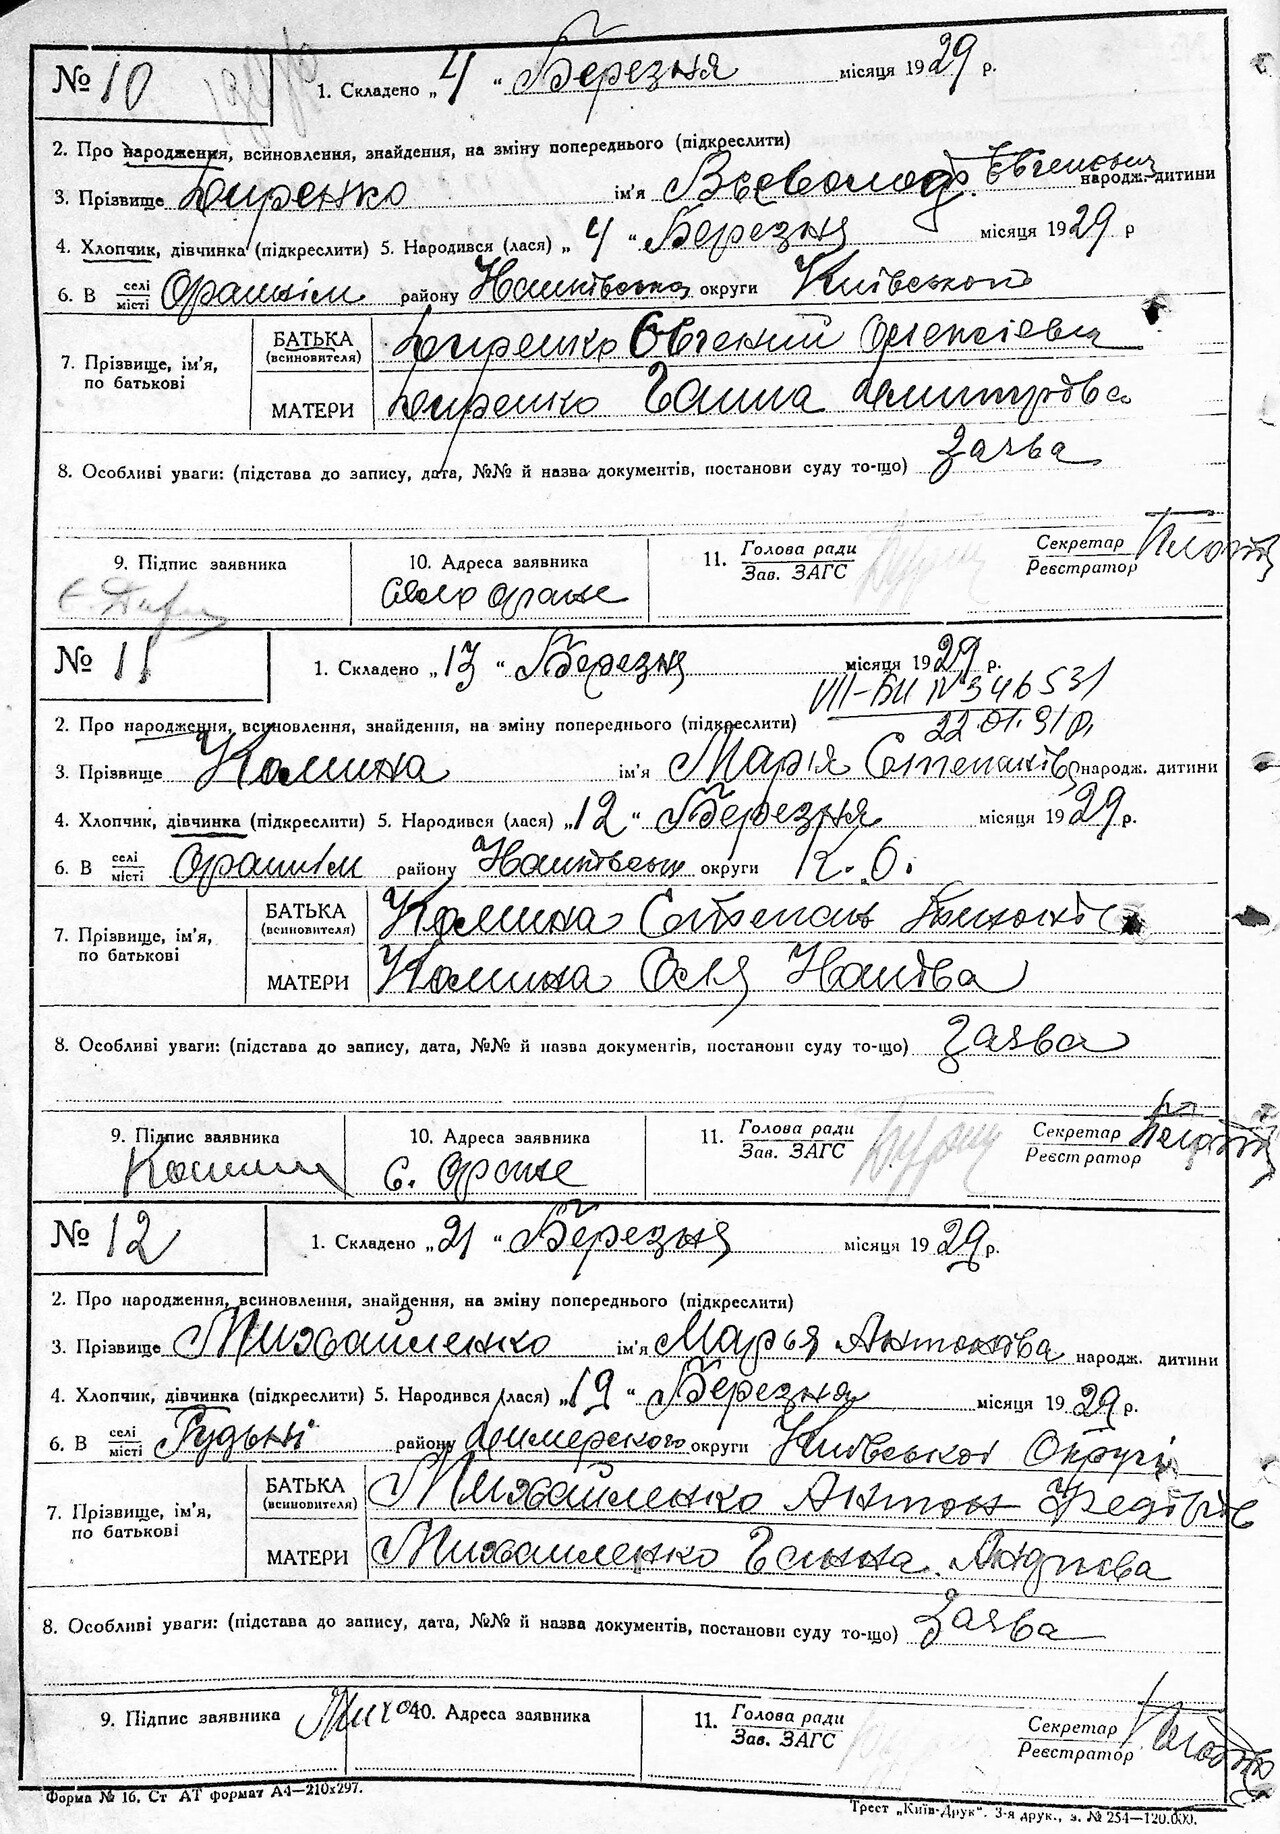 № 10
1. Складено „4“ Березня місяця 1929 р.
2. Про народження, всиновлення, знайдення, на зміну попереднього (підкреслити)
3. Прізвище Диренко ім'я Всеволод Євгенович народж. дитини
4. Хлопчик, дівчинка (підкреслити) 5. Народився (лася) „4“ Березня місяця 1929 р
6. В селі місті Оранним району округи Київської
7. Прізвище, ім'я, по батькові
БАТЬКА (всиновителя) Диренко Євгений Олексієвич
МАТЕРИ Диренко Ганна Дмитровва
8. Особливі уваги: (підстава до запису, дата, №№ й назва документів, постанови суду то-що) Заява
9. Підпис заявника
10. Адреса заявника Село Оране
11. Голова ради Зав. ЗАГС
Секретар Реєстратор
№ 11
1. Складено „13“ Березня місяця 1929 р.
VII-БК № 346531
22.01.91р.
2. Про народження, всиновлення, знайдення, на зміну попереднього (підкреслити)
3. Прізвище Калина ім'я Марія Степанівна народж. дитини
4. Хлопчик, дівчинка (підкреслити) 5. Народився (лася) „12“ Березня місяця 1929 р.
6. В селі місті Оранним району округи К. О.
7. Прізвище, ім'я, по батькові
БАТЬКА (всиновителя) Калина Степан
МАТЕРИ Калина Оля
8. Особливі уваги: (підстава до запису, дата, №№ й назва документів, постанови суду то-що) Заява
9. Підпис заявника Калина
10. Адреса заявника с. Оране
11. Голова ради Зав. ЗАГС
Секретар Реєстратор
№ 12
1. Складено „21“ Березня місяця 1929 р.
2. Про народження, всиновлення, знайдення, на зміну попереднього (підкреслити)
3. Прізвище Михайленко ім'я Марья Антонова народж. дитини
4. Хлопчик, дівчинка (підкреслити) 5. Народився (лася) „19“ Березня місяця 1929 р.
6. В селі місті Рудьні району Димерского округи Київської Округи
7. Прізвище, ім'я, по батькові
БАТЬКА (всиновителя) Михайленко Антон Федорів
МАТЕРИ Михайленко Ганна Андрієва
8. Особливі уваги: (підстава до запису, дата, №№ й назва документів, постанови суду то-що) Заява
9. Підпис заявника
10. Адреса заявника
11. Голова ради Зав. ЗАГС
Секретар Реєстратор
Форма № 16. Ст АТ формат А4—210x297.
Трест „Київ-Друк“. 3-я друк., з. № 254—120.000.